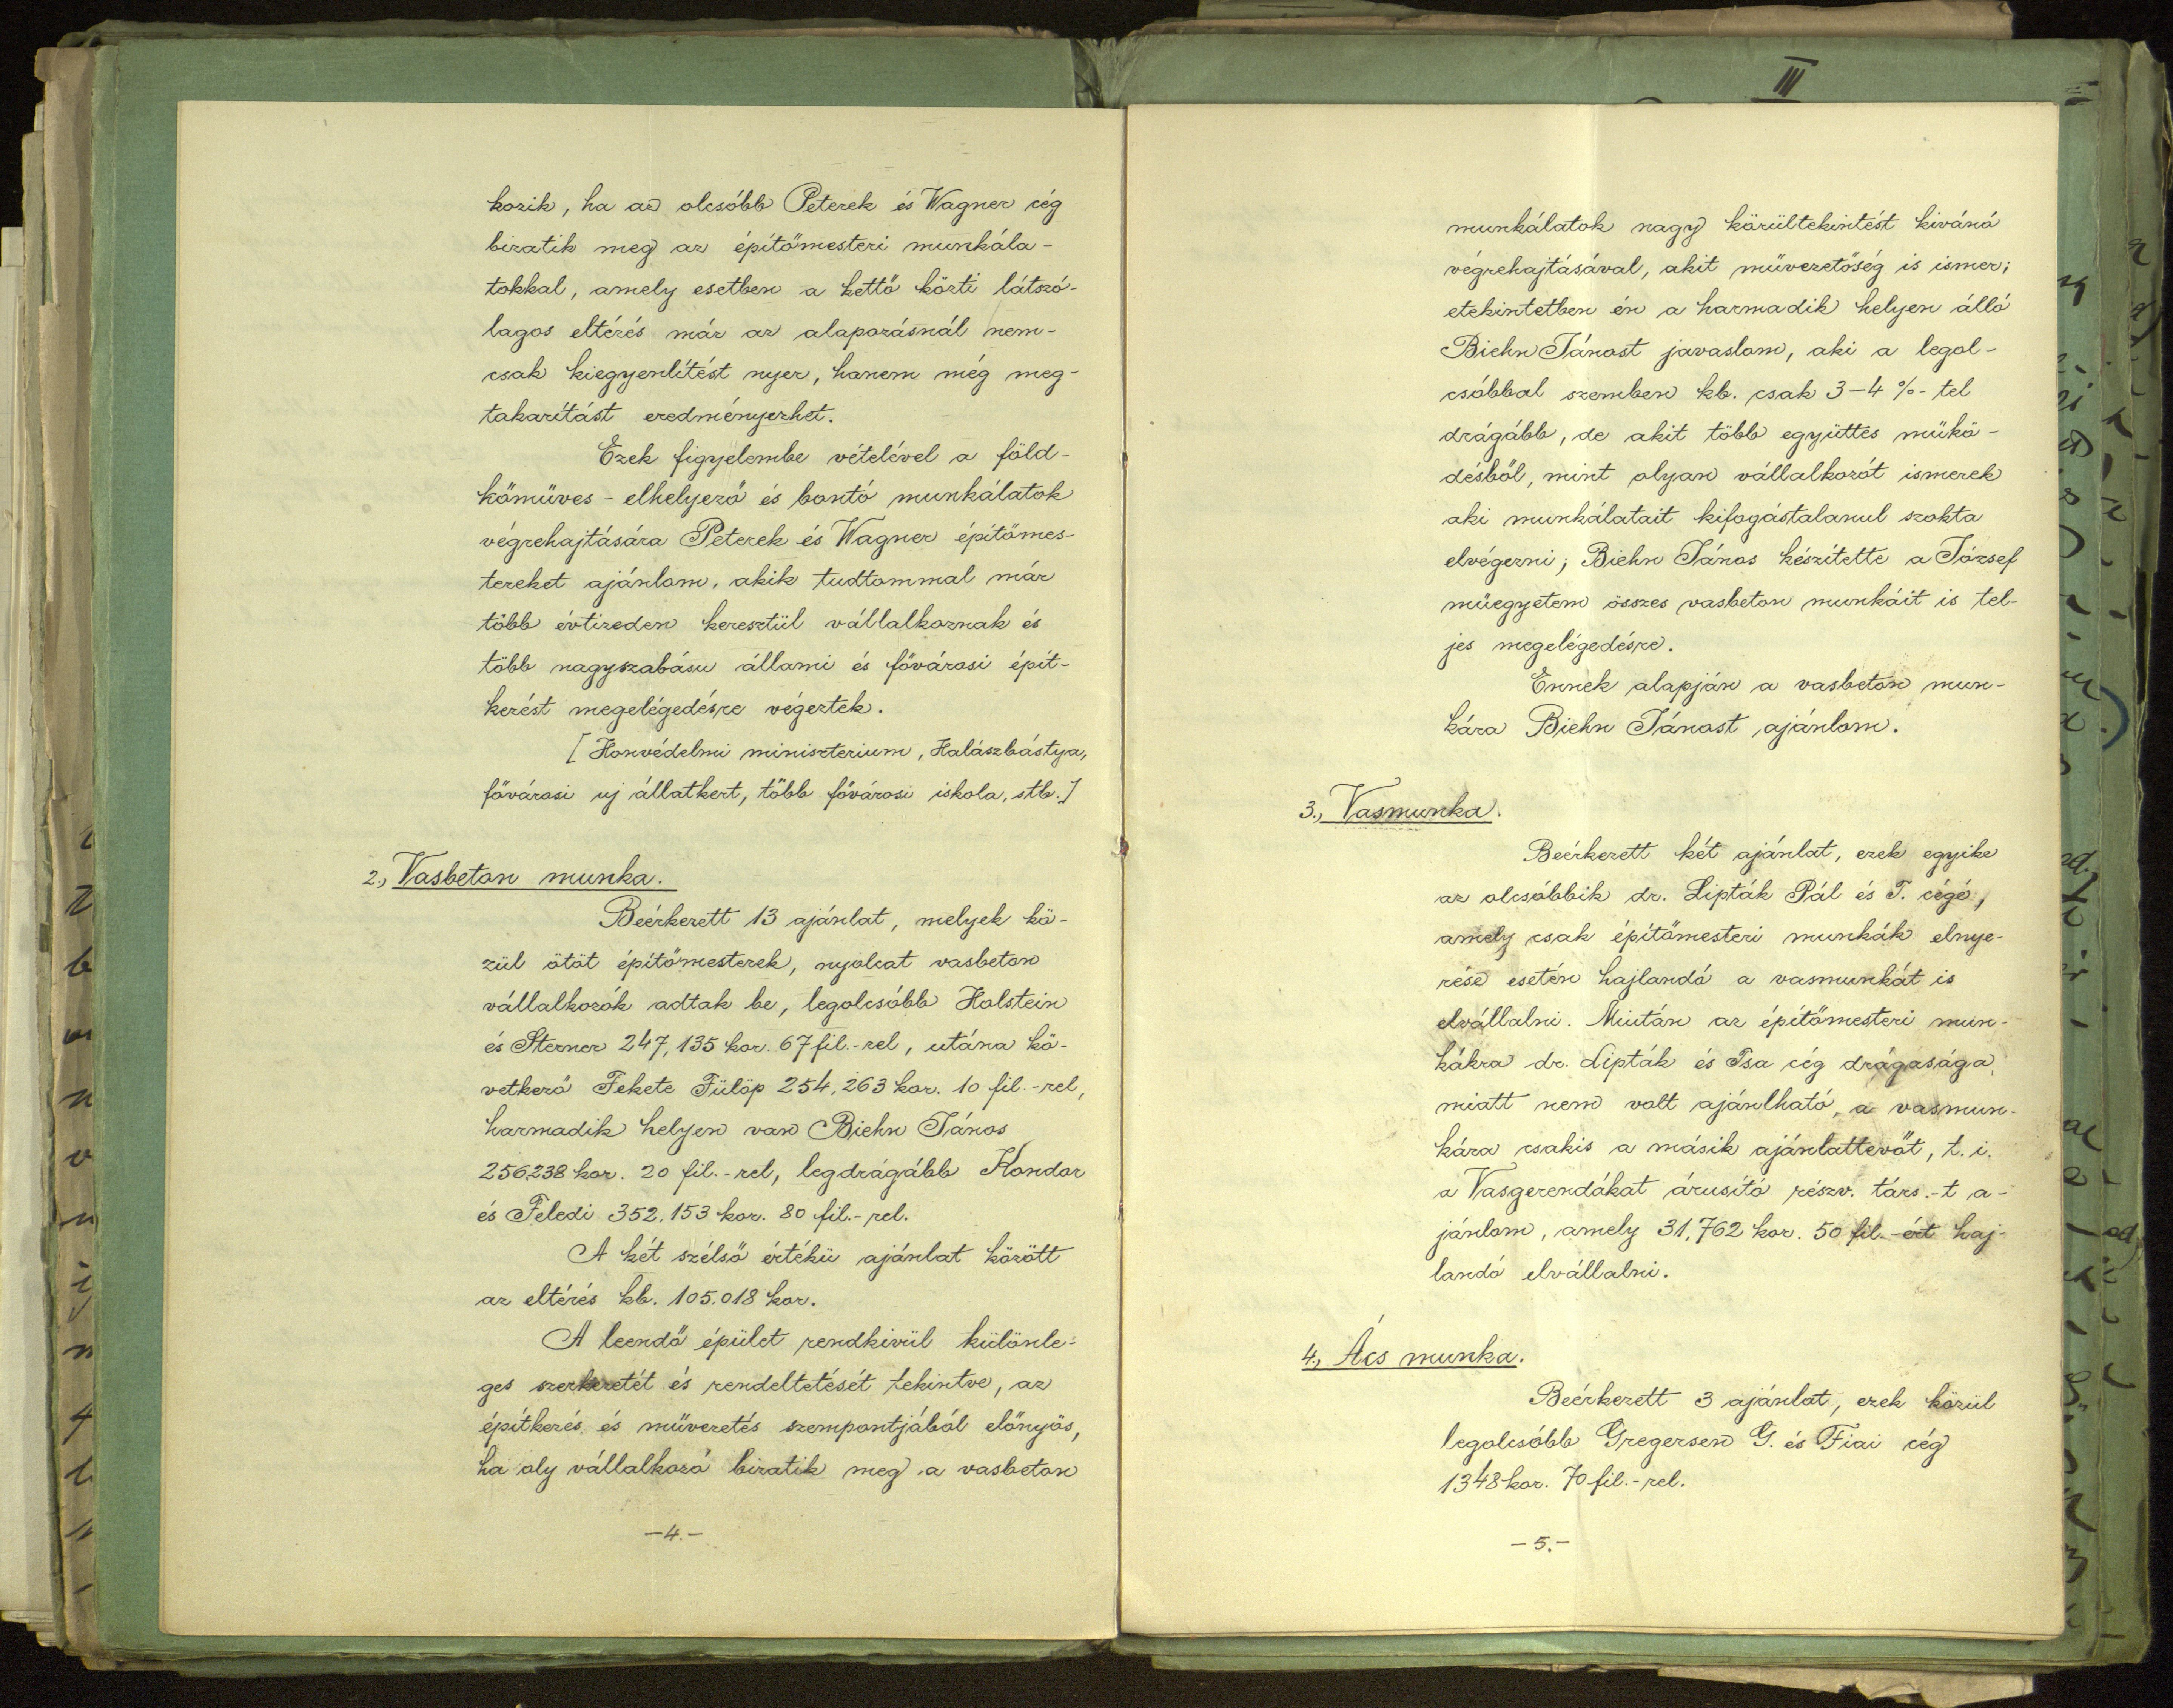 kozik, ha az olcsóbb Peterek és Wagner cég
bizatik meg az építőmesteri munkála-
tokkal, amely esetben a kettő közti látszó-
lagos eltérés már az alapozásnál nem-
csak kiegyenlítést nyer, hanem még meg-
takarítást eredményezhet.
Ezek figyelembe vételével a föld-
kőmüves - elhelyező és bontó munkálatok
végrehajtására Peterek és Wagner építőmes-
tereket ajánlom, akik tudtommal már
több évtizeden keresztül vállalkoznak és
több nagyszabásu állami és fővárosi épít-
kezést megelégedésre végeztek.
[Honvédelmi miniszterium, Halászbástya,
fővárosi uj állatkert, több fővárosi iskola, stb.]
2., Vasbeton munka.
Beérkezett 13 ajánlat, melyek kö-
zül ötöt építőmesterek, nyolcat vasbeton
vállalkozók adtak be, legolcsóbb Holstein
és Sterner 247,135 kor. 67 fil.-rel, utána kö-
vetkező Fekete Fülöp 254,263 kor. 10 fil.-rel,
harmadik helyen van Biehn János
256238 kor. 20 fil.-rel, legdrágább Kondor
és Feledi 352.153 kor. 80 fil.-rel.
A két szélső értékü ajánlat között
az eltérés kb. 105.018 kor.
A leendő épület rendkivül különle-
ges szerkezetét és rendeltetését tekintve, az
építkezés és müvezetés szempontjából előnyös,
ha oly vállalkozó bizatik meg a vasbeton
-4.-
III
munkálatok nagy körültekintést kivánó
végrehajtásával, akit müvezetőség is ismer;
etekintetben én a harmadik helyen álló
Biehn Jánost javaslom, aki a legol-
csóbbal szemben kb. csak 3-4 %-tel
drágább, de akit több együttes mükö-
désből, mint olyan vállalkozót ismerek
aki munkálatait kifogástalanul szokta
elvégezni; Biehn János készítette a József
müegyetem összes vasbeton munkáit is tel-
jes megelégedésre.
Ennek alapján a vasbeton mun-
kára Biehn Jánost ajánlom.
3., Vasmunka.
Beérkezett két ajánlat, ezek egyike
az olcsóbbik dr. Lipták Pál és T. cégé,
amely csak építőmesteri munkák elnye-
rése esetén hajlandó a vasmunkát is
elvállalni. Miután az építőmesteri mun-
kákra dr. Lipták és Tsa cég drágasága
miatt nem volt ajánlható, a vasmun-
kára csakis a másik ajánlattevőt, t. i.
a Vasgerendákat árusító részv. társ.-t a-
jánlom, amely 31,762 kor. 50 fil.-ért haj-
landó elvállalni.
4., Ács munka.
Beérkezett 3 ajánlat, ezek közül
legolcsóbb Gregersen G. és Fiai cég
1348 kor. 70 fil.-rel.
-5.-